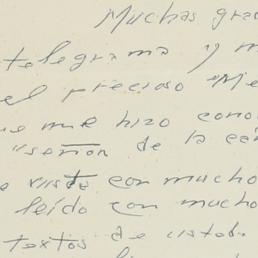 Muchas grac
telegrama y m
el precioso "Me
ue me hizo cono
"señor de la
e vista con mucho
leído con mucho
textos de ustedes